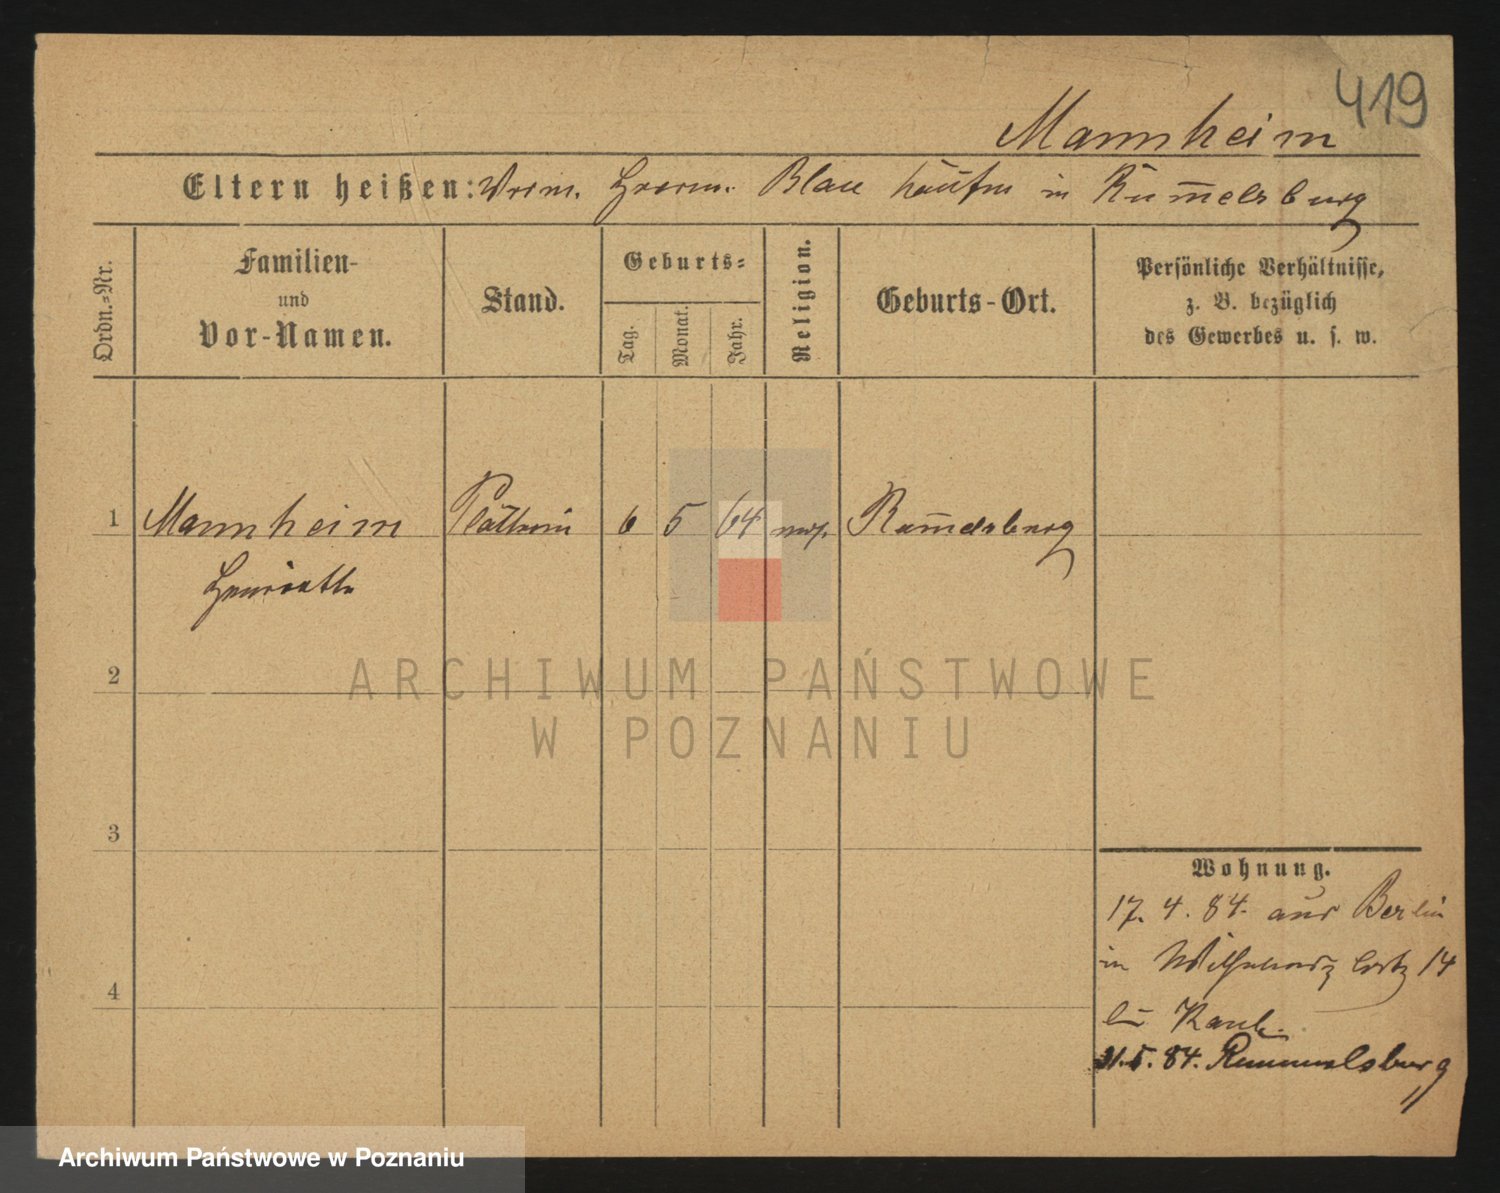 419
Mannheim
Eltern heißen: Herrm. Blau in Rummelsburg
Ordn.-Nr.
Familien-
und
Vor-Namen.
Stand.
Geburts-
Tag.
Monat.
Jahr.
Religion.
Geburts-Ort.
Persönliche Verhältnisse,
z. B. bezüglich
des Gewerbes u. s. w.
1 Mannheim Plätterin 6 5 64 Rummelsburg
Henriette
2
3
4
Wohnung.
17. 4. 84. aus Berlin
in 14
bei
31. 5. 84. Rummelsburg
ARCHIWUM PAŃSTWOWE
W POZNANIU
Archiwum Państwowe w Poznaniu